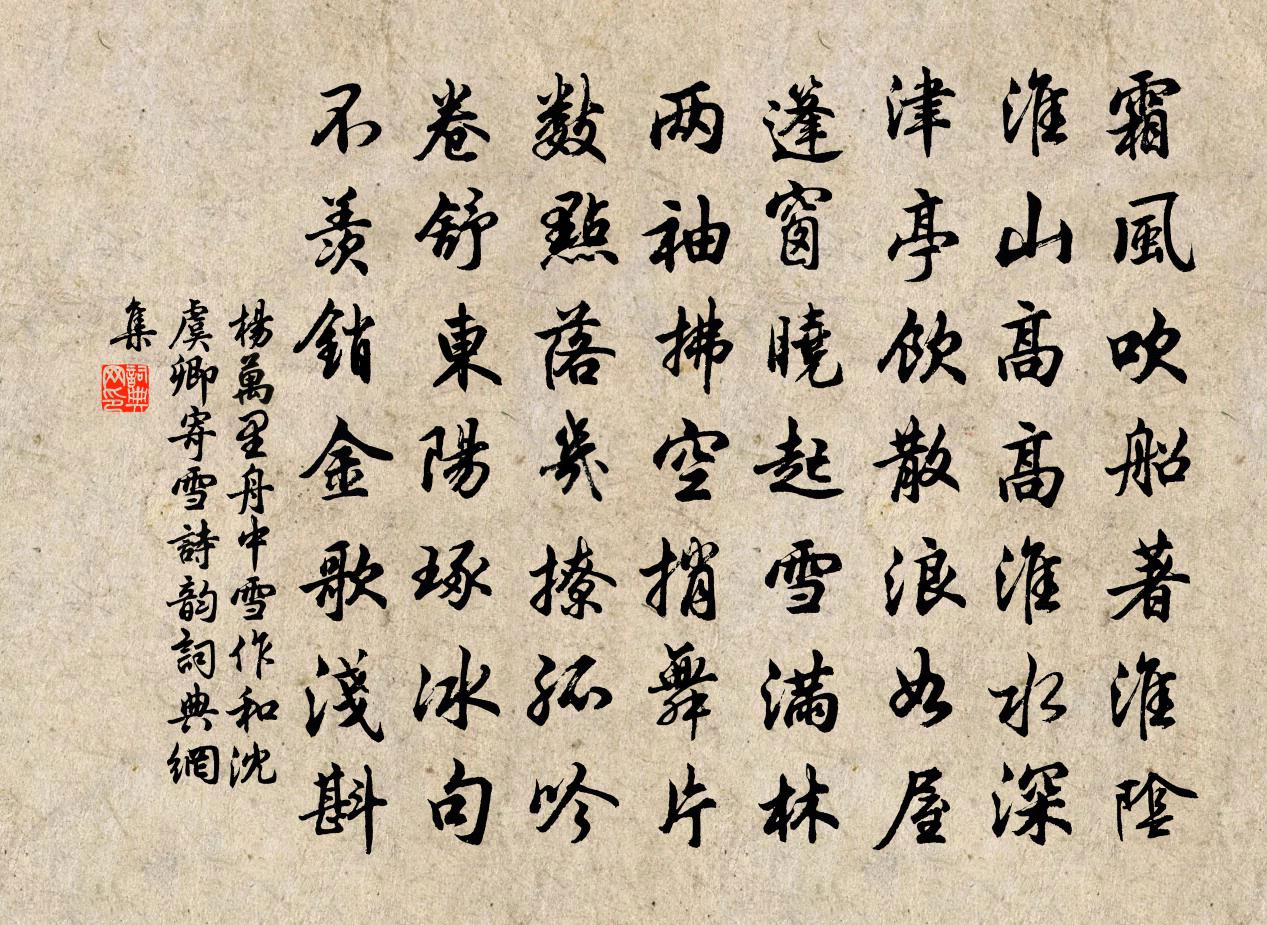 霜風吹船著淮陰
淮山高高淮水深
津亭飲散浪如屋
蓬窗曉起雪滿林
两袖拂空捎舞片
數點落几撩孤吟
卷舒東陽琢冰句
不羨銷金歌淺斟
楊萬里舟中雪作和沈
虞卿寄雪詩韵詞典網
集
詞典
网印